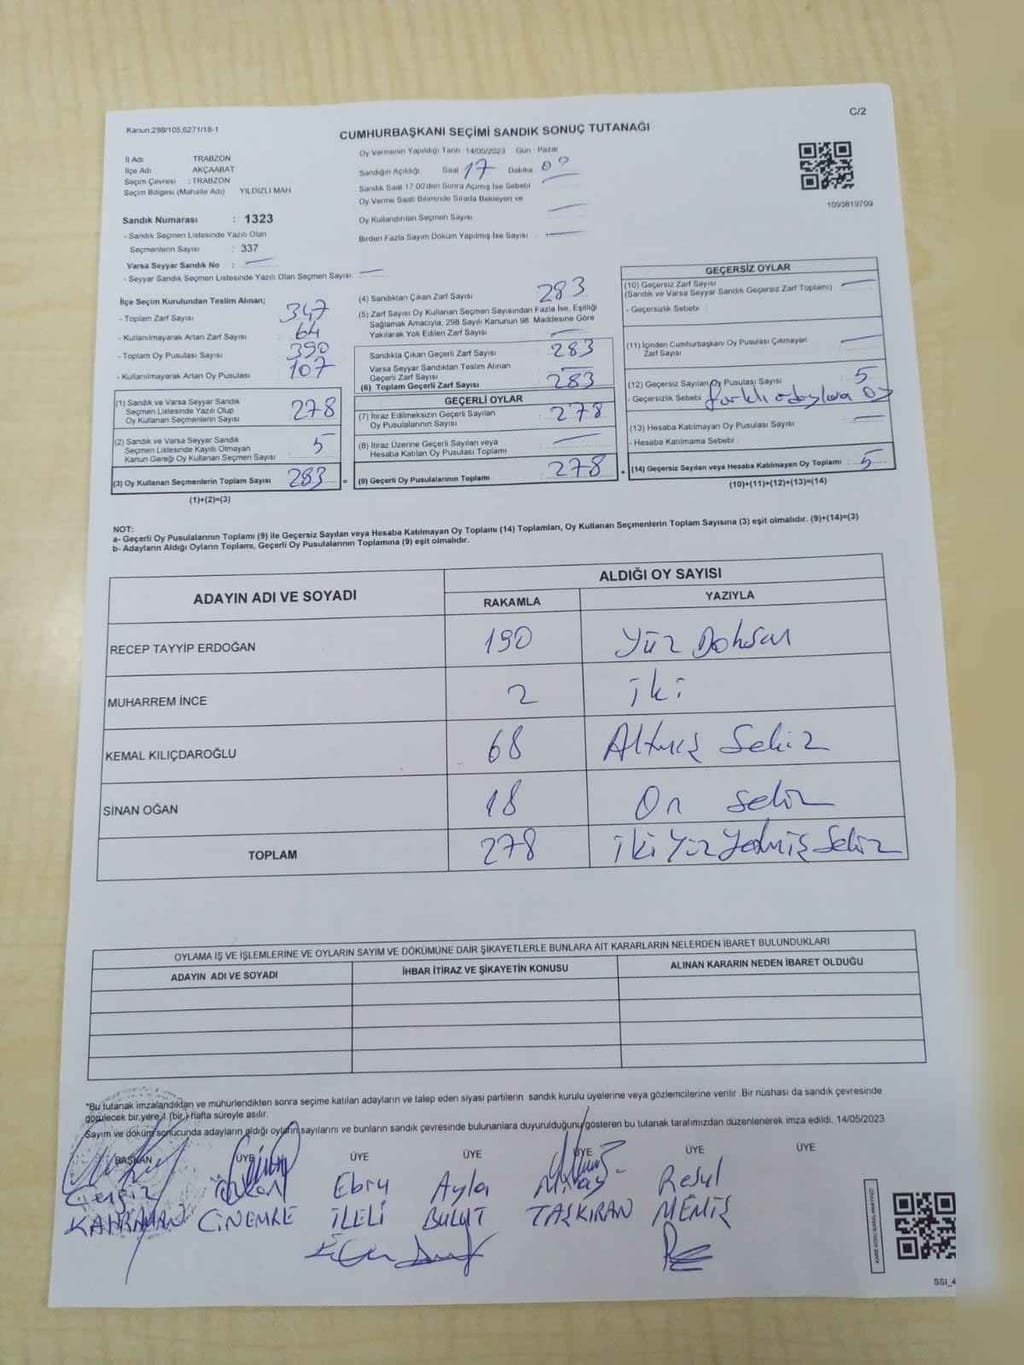 C/2
Kanun:298/105,6271/18-1
CUMHURBAŞKANI SEÇİMİ SANDIK SONUÇ TUTANAĞI
İl Adı TRABZON
İlçe Adı AKÇAABAT
Seçim Çevresi : TRABZON
Seçim Bölgesi (Mahalle Adı) YILDIZLI MAH
Sandık Numarası : 1323
- Sandık Seçmen Listesinde Yazılı Olan
Seçmenlerin Sayısı : 337
Varsa Seyyar Sandık No :
- Seyyar Sandık Seçmen Listesinde Yazılı Olan Seçmen Sayısı:
Oy Vermenin Yapıldığı Tarih :14/05/2023 Gün : Pazar
Sandığın Açıldığı: Saat 17 Dakika 00
Sandık Saat 17:00'den Sonra Açılmış İse Sebebi
Oy Verme Saati Bitiminde Sırada Bekleyen ve
Oy Kullandırılan Seçmen Sayısı
Birden Fazla Sayım Döküm Yapılmış İse Sayısı
1093819709
İlçe Seçim Kurulundan Teslim Alınan;
- Toplam Zarf Sayısı 347
- Kullanılmayarak Artan Zarf Sayısı 64
- Toplam Oy Pusulası Sayısı 390
- Kullanılmayarak Artan Oy Pusulası 107
(1) Sandık ve Varsa Seyyar Sandık
Seçmen Listesinde Yazılı Olup
Oy Kullanan Seçmenlerin Sayısı 278
(2) Sandık ve Varsa Seyyar Sandık
Seçmen Listesinde Kayıtlı Olmayan
Kanun Gereği Oy Kullanan Seçmen Sayısı 5
(3) Oy Kullanan Seçmenlerin Toplam Sayısı 283 =
(1)+(2)=(3)
(4) Sandıktan Çıkan Zarf Sayısı 283
(5) Zarf Sayısı Oy Kullanan Seçmen Sayısından Fazla İse, Eşitliği
Sağlamak Amacıyla, 298 Sayılı Kanunun 98. Maddesine Göre
Yakılarak Yok Edilen Zarf Sayısı
Sandıkta Çıkan Geçerli Zarf Sayısı 283
Varsa Seyyar Sandıktan Teslim Alınan
Geçerli Zarf Sayısı
(6) Toplam Geçerli Zarf Sayısı 283
GEÇERLİ OYLAR
(7) İtiraz Edilmeksizin Geçerli Sayılan
Oy Pusulalarının Sayısı 278
(8) İtiraz Üzerine Geçerli Sayılan veya
Hesaba Katılan Oy Pusulası Toplamı
(9) Geçerli Oy Pusulalarının Toplamı 278 +
GEÇERSİZ OYLAR
(10) Geçersiz Zarf Sayısı
(Sandık ve Varsa Seyyar Sandık Geçersiz Zarf Toplamı)
- Geçersizlik Sebebi
(11) İçinden Cumhurbaşkanı Oy Pusulası Çıkmayan
Zarf Sayısı
(12) Geçersiz Sayılan Oy Pusulası Sayısı 5
- Geçersizlik Sebebi farklı adaylara oy
(13) Hesaba Katılmayan Oy Pusulası Sayısı
- Hesaba Katılmama Sebebi
(14) Geçersiz Sayılan veya Hesaba Katılmayan Oy Toplamı 5
(10)+(11)+(12)+(13)=(14)
NOT:
a- Geçerli Oy Pusulalarının Toplamı (9) ile Geçersiz Sayılan veya Hesaba Katılmayan Oy Toplamı (14) Toplamları, Oy Kullanan Seçmenlerin Toplam Sayısına (3) eşit olmalıdır. (9)+(14)=(3)
b- Adayların Aldığı Oyların Toplamı, Geçerli Oy Pusulalarının Toplamına (9) eşit olmalıdır.
ADAYIN ADI VE SOYADI
ALDIĞI OY SAYISI
RAKAMLA YAZIYLA
RECEP TAYYİP ERDOĞAN 190 Yüz Doksan
MUHARREM İNCE 2 iki
KEMAL KILIÇDAROĞLU 68 Altmış Sekiz
SİNAN OĞAN 18 On sekiz
TOPLAM 278 iki Yüz Yetmiş Sekiz
OYLAMA İŞ VE İŞLEMLERİNE VE OYLARIN SAYIM VE DÖKÜMÜNE DAİR ŞİKAYETLERLE BUNLARA AİT KARARLARIN NELERDEN İBARET BULUNDUKLARI
ADAYIN ADI VE SOYADI İHBAR İTİRAZ VE ŞİKAYETİN KONUSU ALINAN KARARIN NEDEN İBARET OLDUĞU
"Bu tutanak imzalandıktan ve mühürlendikten sonra seçime katılan adayların ve talep eden siyasi partilerin sandık kurulu üyelerine veya gözlemcilerine verilir. Bir nüshası da sandık çevresinde
görülecek bir yere 1 (bir) hafta süreyle asılır.
Sayım ve döküm sonucunda adayların aldığı oyların sayılarını ve bunların sandık çevresinde bulunanlara duyurulduğunu gösteren bu tutanak tarafımızdan düzenlenerek imza edildi. 14/05/2023
BAŞKAN ÜYE ÜYE ÜYE ÜYE ÜYE ÜYE
Cengiz Ebru Ayla Miraç Resul
KAHRAMAN CİNEMRE İLELİ BULUT TAŞKIRAN MEMİŞ
SSI_4